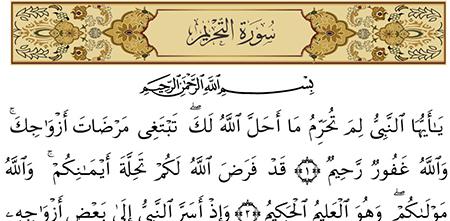 سُورَةُ التَّحْرِيمِ
بِسْمِ اللَّهِ الرَّحْمَٰنِ الرَّحِيمِ
يَٰٓأَيُّهَا النَّبِيُّ لِمَ تُحَرِّمُ مَآ أَحَلَّ اللَّهُ لَكَۖ تَبْتَغِي مَرْضَاتَ أَزْوَٰجِكَۚ
وَاللَّهُ غَفُورٌ رَّحِيمٌ ﴿١﴾ قَدْ فَرَضَ اللَّهُ لَكُمْ تَحِلَّةَ أَيْمَٰنِكُمْۚ وَاللَّهُ
مَوْلَىٰكُمْۖ وَهُوَ الْعَلِيمُ الْحَكِيمُ ﴿٢﴾ وَإِذْ أَسَرَّ النَّبِيُّ إِلَىٰ بَعْضِ أَزْوَٰجِهِۦ